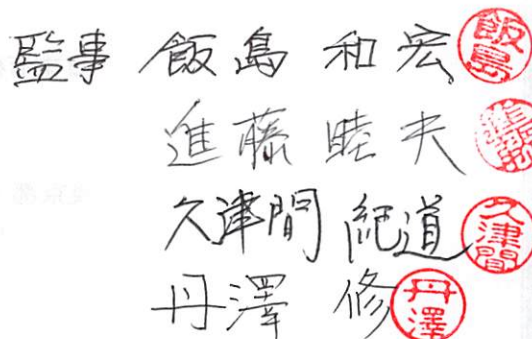 監事 飯島 和宏 飯島
進藤 睦夫 進藤
久津間 紀道 久津間
丹澤 修 丹澤